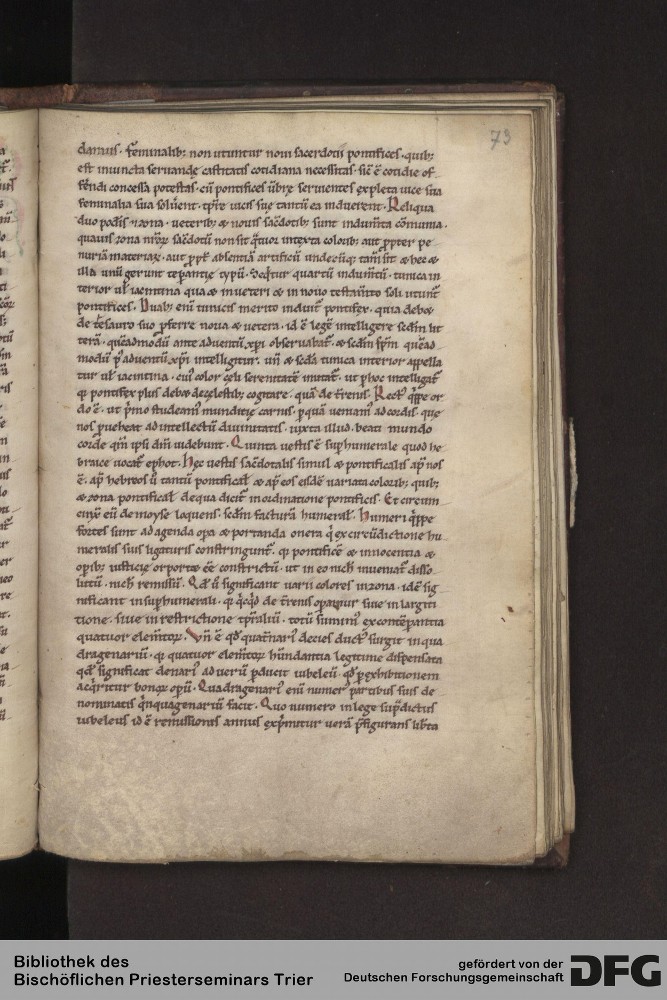 73
damus · feminalib; non utuntur noui sacerdotii pontifices · quib;
est iniuncta seruandę castitatis cotidiana necessitas · sic ē cotidie of
ferendi concessa potestas · cū pontifices ueteres seruientes expleta uice sua
feminalia sua soluerent · tempore uicis suę tantū ea induerent · Reliqua
duo · zona · ueterib; & nouis sacdotib; sunt indumta cōmunia ·
quauis zona nrōꝝ sacdotū non sit intexta colorib; aut ꝓpter pe
nuriā materiarū · aut ꝓpt absentiā artificū undecūq; tam sit & hec &
illa unū gerunt tēperantię typū · Seqtur quartū indumtū · tunica in
terior ul iacintina qua & in ueteri & in nouo testamto soli utunt
pontifices · Duab; enī tunicis merito induit pontifex · quia debet
de thesauro suo ꝓferre noua & uetera · id ē legē intelligere scdm lit
terā · quēadmodū ante aduentū xpi obseruabat · & scdm spm quēad
modū p aduentū xpi intelligitur · unā & scda tunica interior appella
tur ul iacintina · cui color cęli serenitatē imitat · ut p hoc intelligat
qd pontifex plus debet de cęlestib; cogitare · quā de trenis · Rect qppe or
do ē · ut pmo studeam munditię carnis · ꝑ quā ueniam ad cordis · que
nos ꝓuehat ad intellectū diuinitatis · iuxta illud · beati mundo
corde qm ipsi dm uidebunt · Quinta uestis ē suphumerale quod he
braice uocat ephot · Hęc uestis sacdotalis simul & pontificalis ap nos
ē · ap hebreos u tantū pontifical & ap eos eisdē uariata colorib; quib;
& zona pontifical de qua dicit in ordinatione pontificis · Et circum
cinx eū de moyse loquens · scdm facturā humeral · Humeri qppe
fortes sunt ad agenda opa & portanda onera
meralis suis ligaturis constringunt · qd pontificē & innocentia &
opib; iustitię oporteat eē constrictū · ut in eo nich inueniat disso
lutū · nich remissū · Qd u significant uarii colores in zona · idē sig
nificant in suphumerali · qd qcqd de trenis opamur siue in largiti
tione · siue in restrictione tpraliū · totū sumim ex contēperantia
quatuor elemtoꝝ · Un ē qd quatnari decies duct surgit in qua
dragenariū · qd quatuor elemtoꝝ habundantia legitime dispensata
qd significat denari ad uerū pducit iubeleū · qd p exhibitionem
acqritur bonoꝝ opū · Quadragenari enī numer partibus suis de
nominatis qnquagenariū facit · Quo numero in lege supdictus
iubeleus id ē remissionis annus exprimitur uerā pfigurans libta
Bibliothek des
Bischöflichen Priesterseminars Trier
gefördert von der
Deutschen Forschungsgemeinschaft
DFG